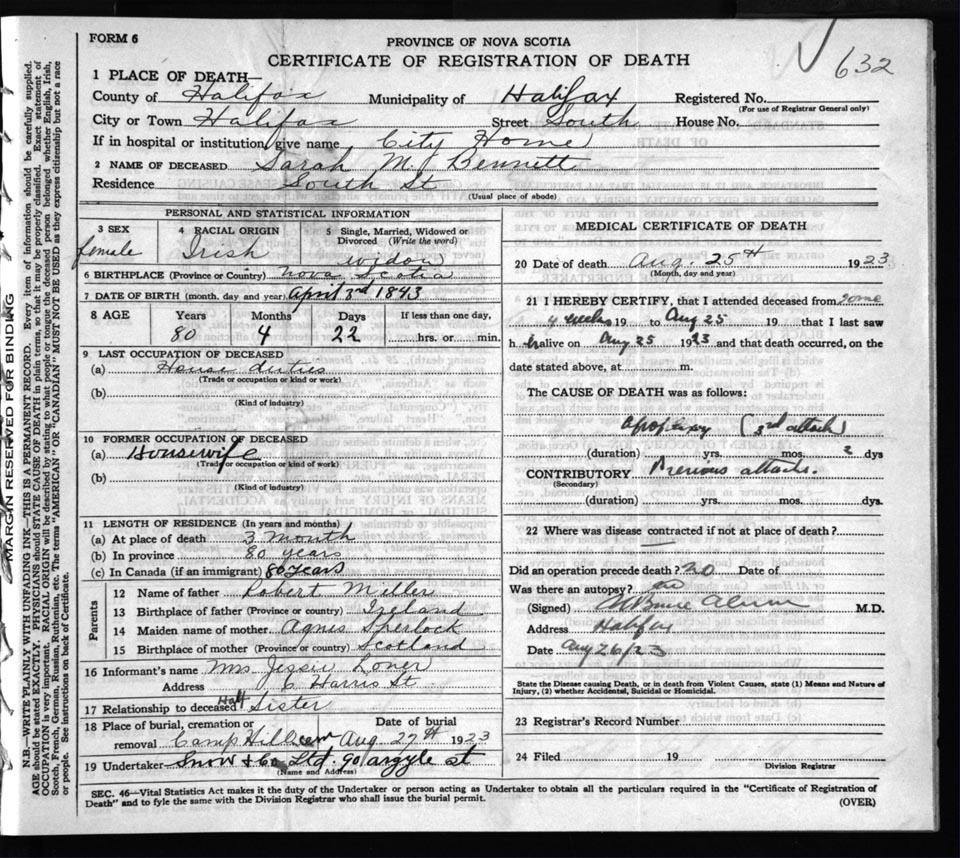 FORM 6
PROVINCE OF NOVA SCOTIA
CERTIFICATE OF REGISTRATION OF DEATH
632
1 PLACE OF DEATH—
County of Halifax Municipality of Halifax Registered No.
(For use of Registrar General only)
City or Town Halifax Street South House No.
If in hospital or institution, give name City Home
2 NAME OF DECEASED Sarah M. Bennett
Residence South St
(Usual place of abode)
PERSONAL AND STATISTICAL INFORMATION
3 SEX 4 RACIAL ORIGIN 5 Single, Married, Widowed or Divorced (Write the word)
female Irish widow
6 BIRTHPLACE (Province or Country) Nova Scotia
7 DATE OF BIRTH (month, day and year) April 3rd 1843
8 AGE Years Months Days If less than one day,
80 4 22 hrs. or min.
9 LAST OCCUPATION OF DECEASED
(a) House duties
(Trade or occupation or kind or work)
(b)
(Kind of industry)
10 FORMER OCCUPATION OF DECEASED
(a) Housewife
(Trade or occupation or kind of work)
(b)
(Kind of industry)
11 LENGTH OF RESIDENCE (In years and months)
(a) At place of death 3 month
(b) In province 80 years
(c) In Canada (if an immigrant) 80 years
Parents
12 Name of father Robert Miller
13 Birthplace of father (Province or country) Ireland
14 Maiden name of mother Agnis Sperlock
15 Birthplace of mother (Province or country) Scotland
16 Informant's name Mrs Jessie
Address 6 Harris St
17 Relationship to deceased Half Sister
18 Place of burial, cremation or removal Camp Hill cem Date of burial Aug 27th 1923
19 Undertaker Snow & Co Ltd. 90 argyle st
(Name and Address)
MEDICAL CERTIFICATE OF DEATH
20 Date of death Aug. 25th 1923
(Month, day and year)
21 I HEREBY CERTIFY, that I attended deceased from some
4 weeks 19 to Aug 25 19 that I last saw
h er alive on Aug 25 1923 and that death occurred, on the
date stated above, at m.
The CAUSE OF DEATH was as follows:
apoplexy (3rd attack)
(duration) yrs. mos. 2 dys
CONTRIBUTORY Previous attacks.
(Secondary)
(duration) yrs. mos. dys.
22 Where was disease contracted if not at place of death?
Did an operation precede death? no Date of
Was there an autopsy? no
(Signed) M.D.
Address Halifax
Date Aug 26/23
State the Disease causing Death, or in death from Violent Causes, state (1) Means and Nature of
Injury, (2) whether Accidental, Suicidal or Homicidal.
23 Registrar's Record Number
24 Filed 19
Division Registrar
SEC. 46—Vital Statistics Act makes it the duty of the Undertaker or person acting as Undertaker to obtain all the particulars required in the "Certificate of Registration of
Death" and to fyle the same with the Division Registrar who shall issue the burial permit.
(OVER)
MARGIN RESERVED FOR BINDING
N.B.—WRITE PLAINLY WITH UNFADING INK—THIS IS A PERMANENT RECORD. Every item of information should be carefully supplied.
AGE should be stated EXACTLY. PHYSICIANS should STATE CAUSE OF DEATH in plain terms, so that it may be properly classified. Exact statement of
OCCUPATION is very important. RACIAL ORIGIN will be described by stating to what people or tongue the deceased person belonged whether English, Irish,
Scotch, French, German, Russian, Ruthenian, etc. The terms "AMERICAN" OR "CANADIAN" MUST NOT BE USED as they express citizenship but not a race
or people. See instructions on back of Certificate.